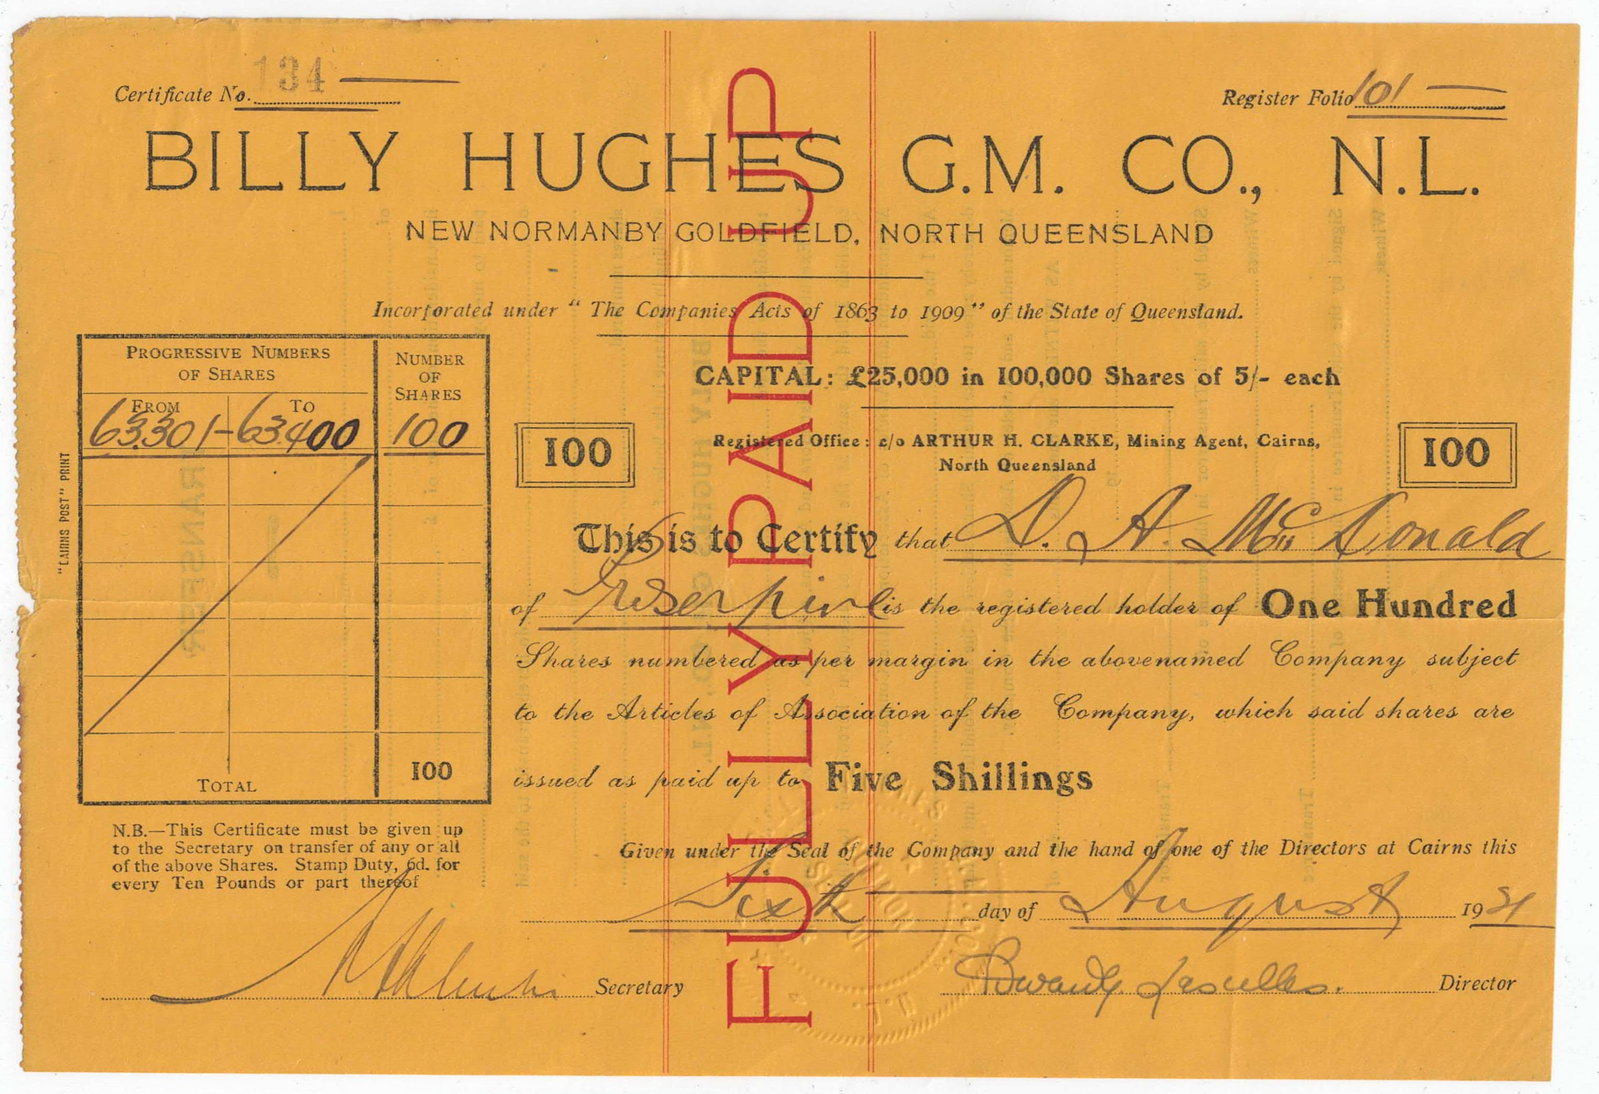 Certificate No. 134
Register Folio 101
BILLY HUGHES G.M. CO., N.L.
NEW NORMANBY GOLDFIELD, NORTH QUEENSLAND
Incorporated under "The Companies Acts of 1863 to 1909" of the State of Queensland.
CAPITAL: £25,000 in 100,000 Shares of 5/- each
Registered Office: c/o ARTHUR H. CLARKE, Mining Agent, Cairns,
North Queensland
100
100
PROGRESSIVE NUMBERS
OF SHARES
NUMBER
OF
SHARES
FROM TO
63301 - 63400 100
TOTAL 100
"CAIRNS POST" PRINT
FULLY PAID UP
This is to Certify that D. A. McDonald
of Proserpine is the registered holder of One Hundred
Shares numbered as per margin in the abovenamed Company subject
to the Articles of Association of the Company, which said shares are
issued as paid up to Five Shillings
N.B.—This Certificate must be given up
to the Secretary on transfer of any or all
of the above Shares. Stamp Duty, 6d. for
every Ten Pounds or part thereof
Given under the Seal of the Company and the hand of one of the Directors at Cairns this
Sixth day of August 1931
Secretary
Lascelles. Director